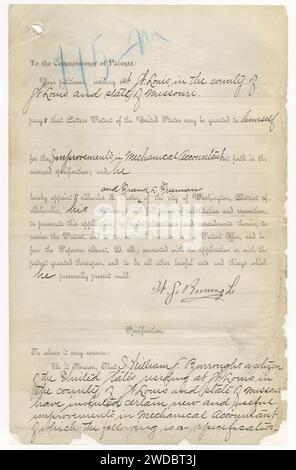 115 m
To the Commissioner of Patents:
Your petitioner, residing at St. Louis, in the county of
St. Louis and state of Missouri.
pray s that Letters Patent of the United States may be granted to himself
for the Improvements in Mechanical Accountant set forth in the
annexed specification; and he
and Franz X. Freeman
hereby appoint s Charles B. Foster, of the city of Washington, District of
Columbia, his substitution and revocation,
to prosecute this appl amendments therein; to
receive the Patent, Patent Office, and be-
fore the Supreme Court, D. C., connected with the application or with the
patent granted thereupon, and to do all other lawful acts and things which
he personally present could.
W. S. Burroughs
Specification.
To whom it may concern:
Be it Known, That I, William S. Burroughs a citizen
of the United States residing at St. Louis in
the county of St. Louis and state of Missouri
have invented certain new and useful
improvements in Mechanical Accountant
of which the following is a specification
alamy
Image ID: 2WDBT3J
www.alamy.com